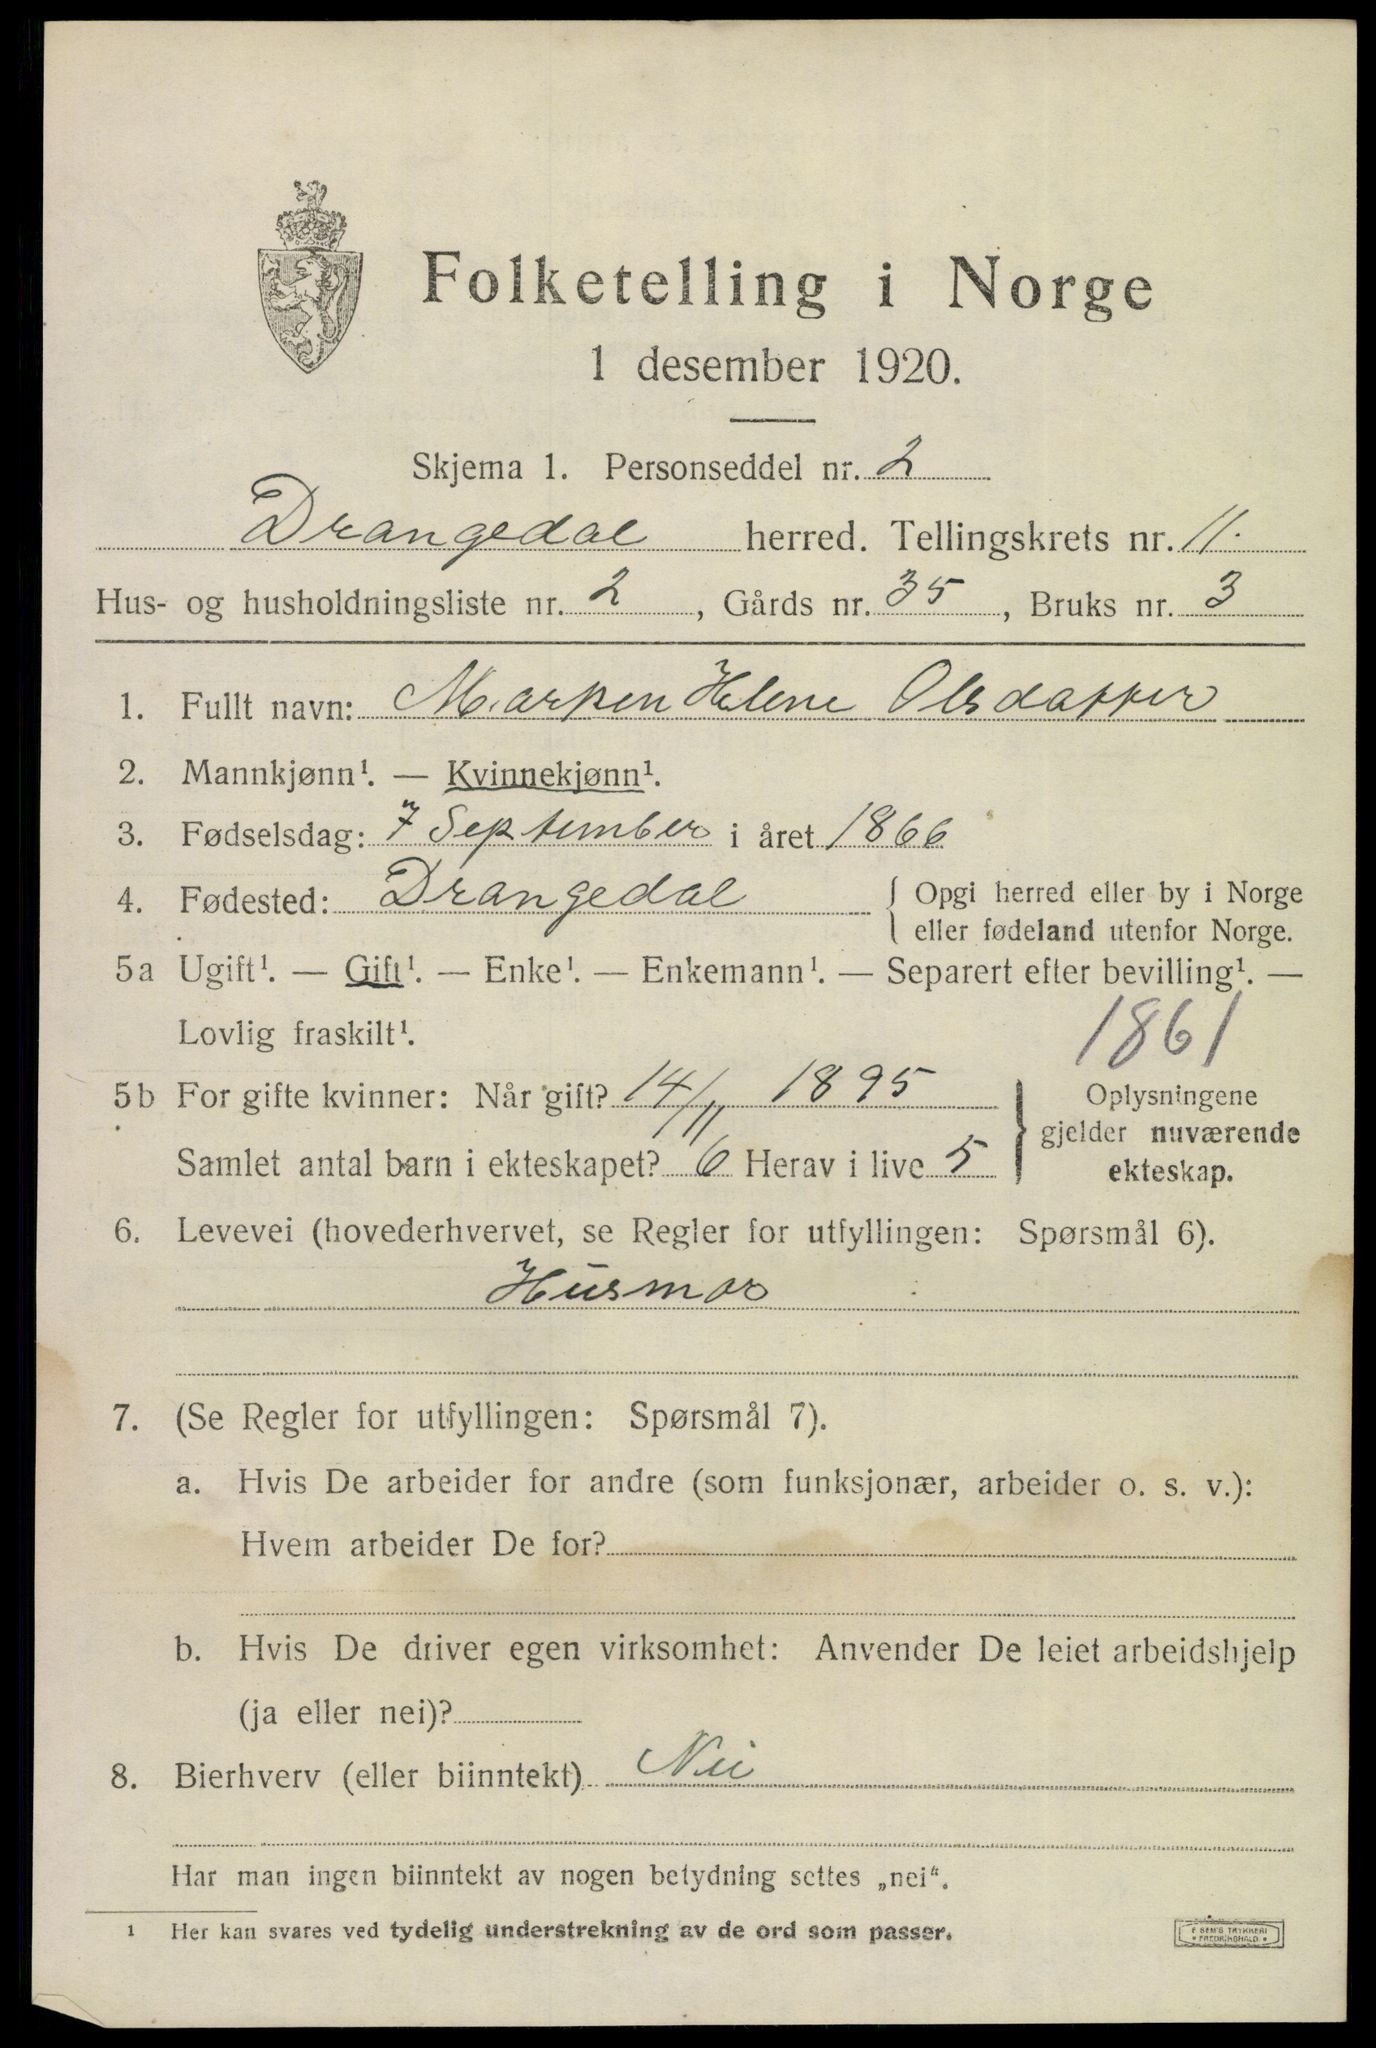 Folketelling i Norge
1 desember 1920.
Skjema 1. Personseddel nr. 2
Drangedal herred. Tellingskrets nr. 11.
Hus- og husholdningsliste nr. 2, Gårds nr. 35, Bruks nr. 3
1. Fullt navn: Marken Helene Olsdatter
2. Mannkjønn¹. — Kvinnekjønn¹.
3. Fødselsdag: 7 September i året 1866
4. Fødested: Drangedal { Opgi herred eller by i Norge
eller fødeland utenfor Norge.
5a Ugift¹. — Gift¹. — Enke¹. — Enkemann¹. — Separert efter bevilling¹. —
Lovlig fraskilt¹.
1861
5b For gifte kvinner: Når gift? 14/11 1895
Samlet antal barn i ekteskapet? 6 Herav i live 5
} Oplysningene
gjelder nuværende
ekteskap.
6. Levevei (hovederhvervet, se Regler for utfyllingen: Spørsmål 6).
Husmor
7. (Se Regler for utfyllingen: Spørsmål 7).
a. Hvis De arbeider for andre (som funksjonær, arbeider o. s. v.):
Hvem arbeider De for?
b. Hvis De driver egen virksomhet: Anvender De leiet arbeidshjelp
(ja eller nei)?
8. Bierhverv (eller biinntekt) Nei
Har man ingen biinntekt av nogen betydning settes „nei“.
¹ Her kan svares ved tydelig understrekning av de ord som passer.
E SEM'S TRYKKERI
FREDRIKSHALD.